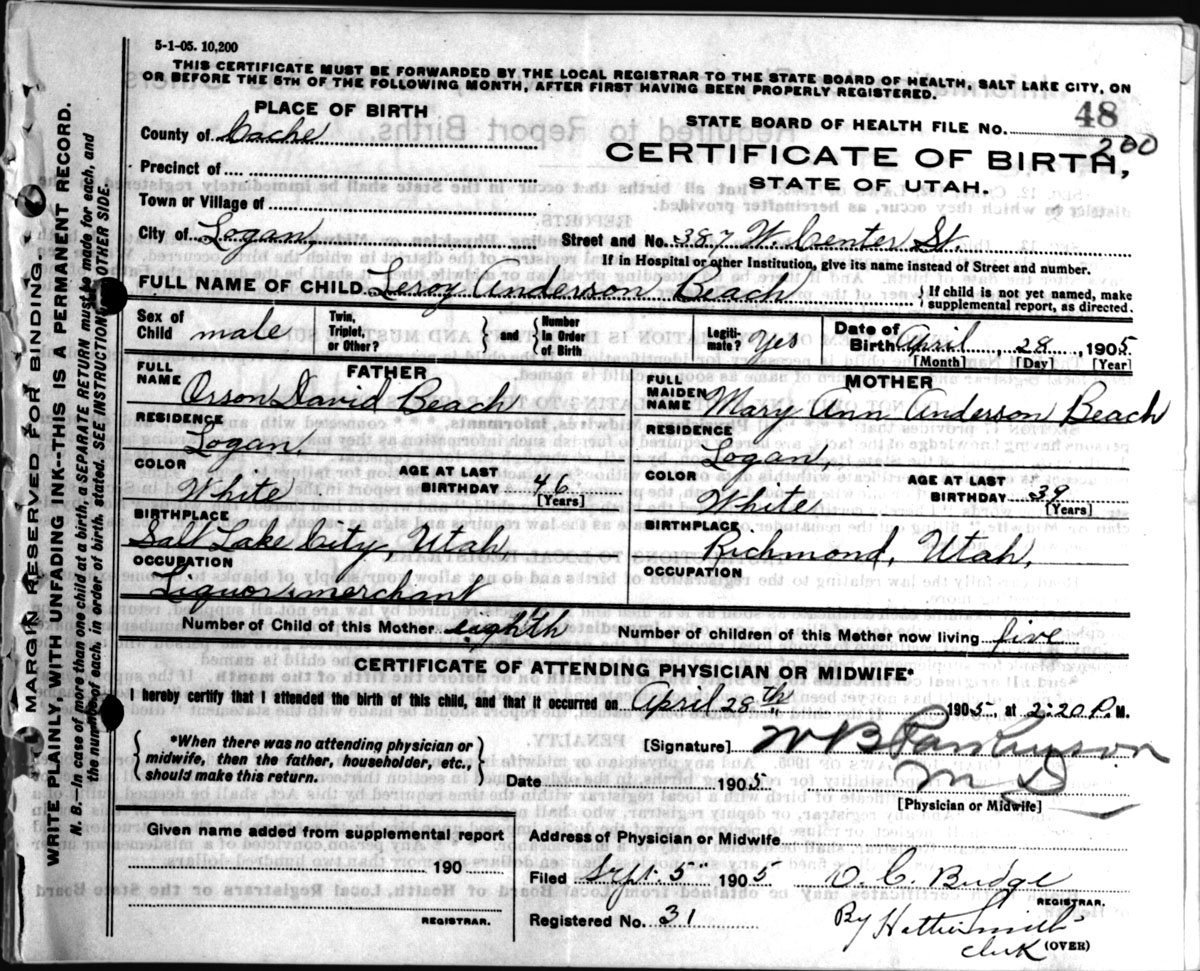 5-1-05. 10,200
THIS CERTIFICATE MUST BE FORWARDED BY THE LOCAL REGISTRAR TO THE STATE BOARD OF HEALTH, SALT LAKE CITY, ON
OR BEFORE THE 5TH OF THE FOLLOWING MONTH, AFTER FIRST HAVING BEEN PROPERLY REGISTERED.
PLACE OF BIRTH
STATE BOARD OF HEALTH FILE NO. 48
200
County of Cache
CERTIFICATE OF BIRTH,
Precinct of
STATE OF UTAH.
Town or Village of
City of Logan, Street and No. 387 W. Center St.
If in Hospital or other Institution, give its name instead of Street and number.
FULL NAME OF CHILD Leroy Anderson Beach { If child is not yet named, make supplemental report, as directed.
Sex of Child male Twin, Triplet, or Other? } and { Number in Order of Birth Legitimate? yes Date of Birth April, 28, 1905
[Month] [Day] [Year]
FATHER
FULL NAME Orson David Beach
RESIDENCE
Logan.
COLOR White AGE AT LAST BIRTHDAY 46 [Years]
BIRTHPLACE
Salt Lake City, Utah
OCCUPATION
Liquor merchant
MOTHER
FULL MAIDEN NAME Mary Ann Anderson Beach
RESIDENCE
Logan,
COLOR White AGE AT LAST BIRTHDAY 39 [Years]
BIRTHPLACE
Richmond, Utah,
OCCUPATION
Number of Child of this Mother eighth Number of children of this Mother now living five
CERTIFICATE OF ATTENDING PHYSICIAN OR MIDWIFE*
I hereby certify that I attended the birth of this child, and that it occurred on April 28th 1905, at 2:20 P. M.
{ *When there was no attending physician or midwife, then the father, householder, etc., should make this return. }
[Signature] W B Parkinson
M D
Date 1905
[Physician or Midwife]
Given name added from supplemental report
190
REGISTRAR.
Address of Physician or Midwife
Filed Sept. 5 1905 O. C. Budge
REGISTRAR.
Registered No. 31 By Hattie Smith
clerk
(OVER)
MARGIN RESERVED FOR BINDING.
WRITE PLAINLY, WITH UNFADING INK--THIS IS A PERMANENT RECORD.
N. B.—In case of more than one child at a birth, a SEPARATE RETURN must be made for each, and
the number of each, in order of birth, stated. SEE INSTRUCTIONS ON OTHER SIDE.